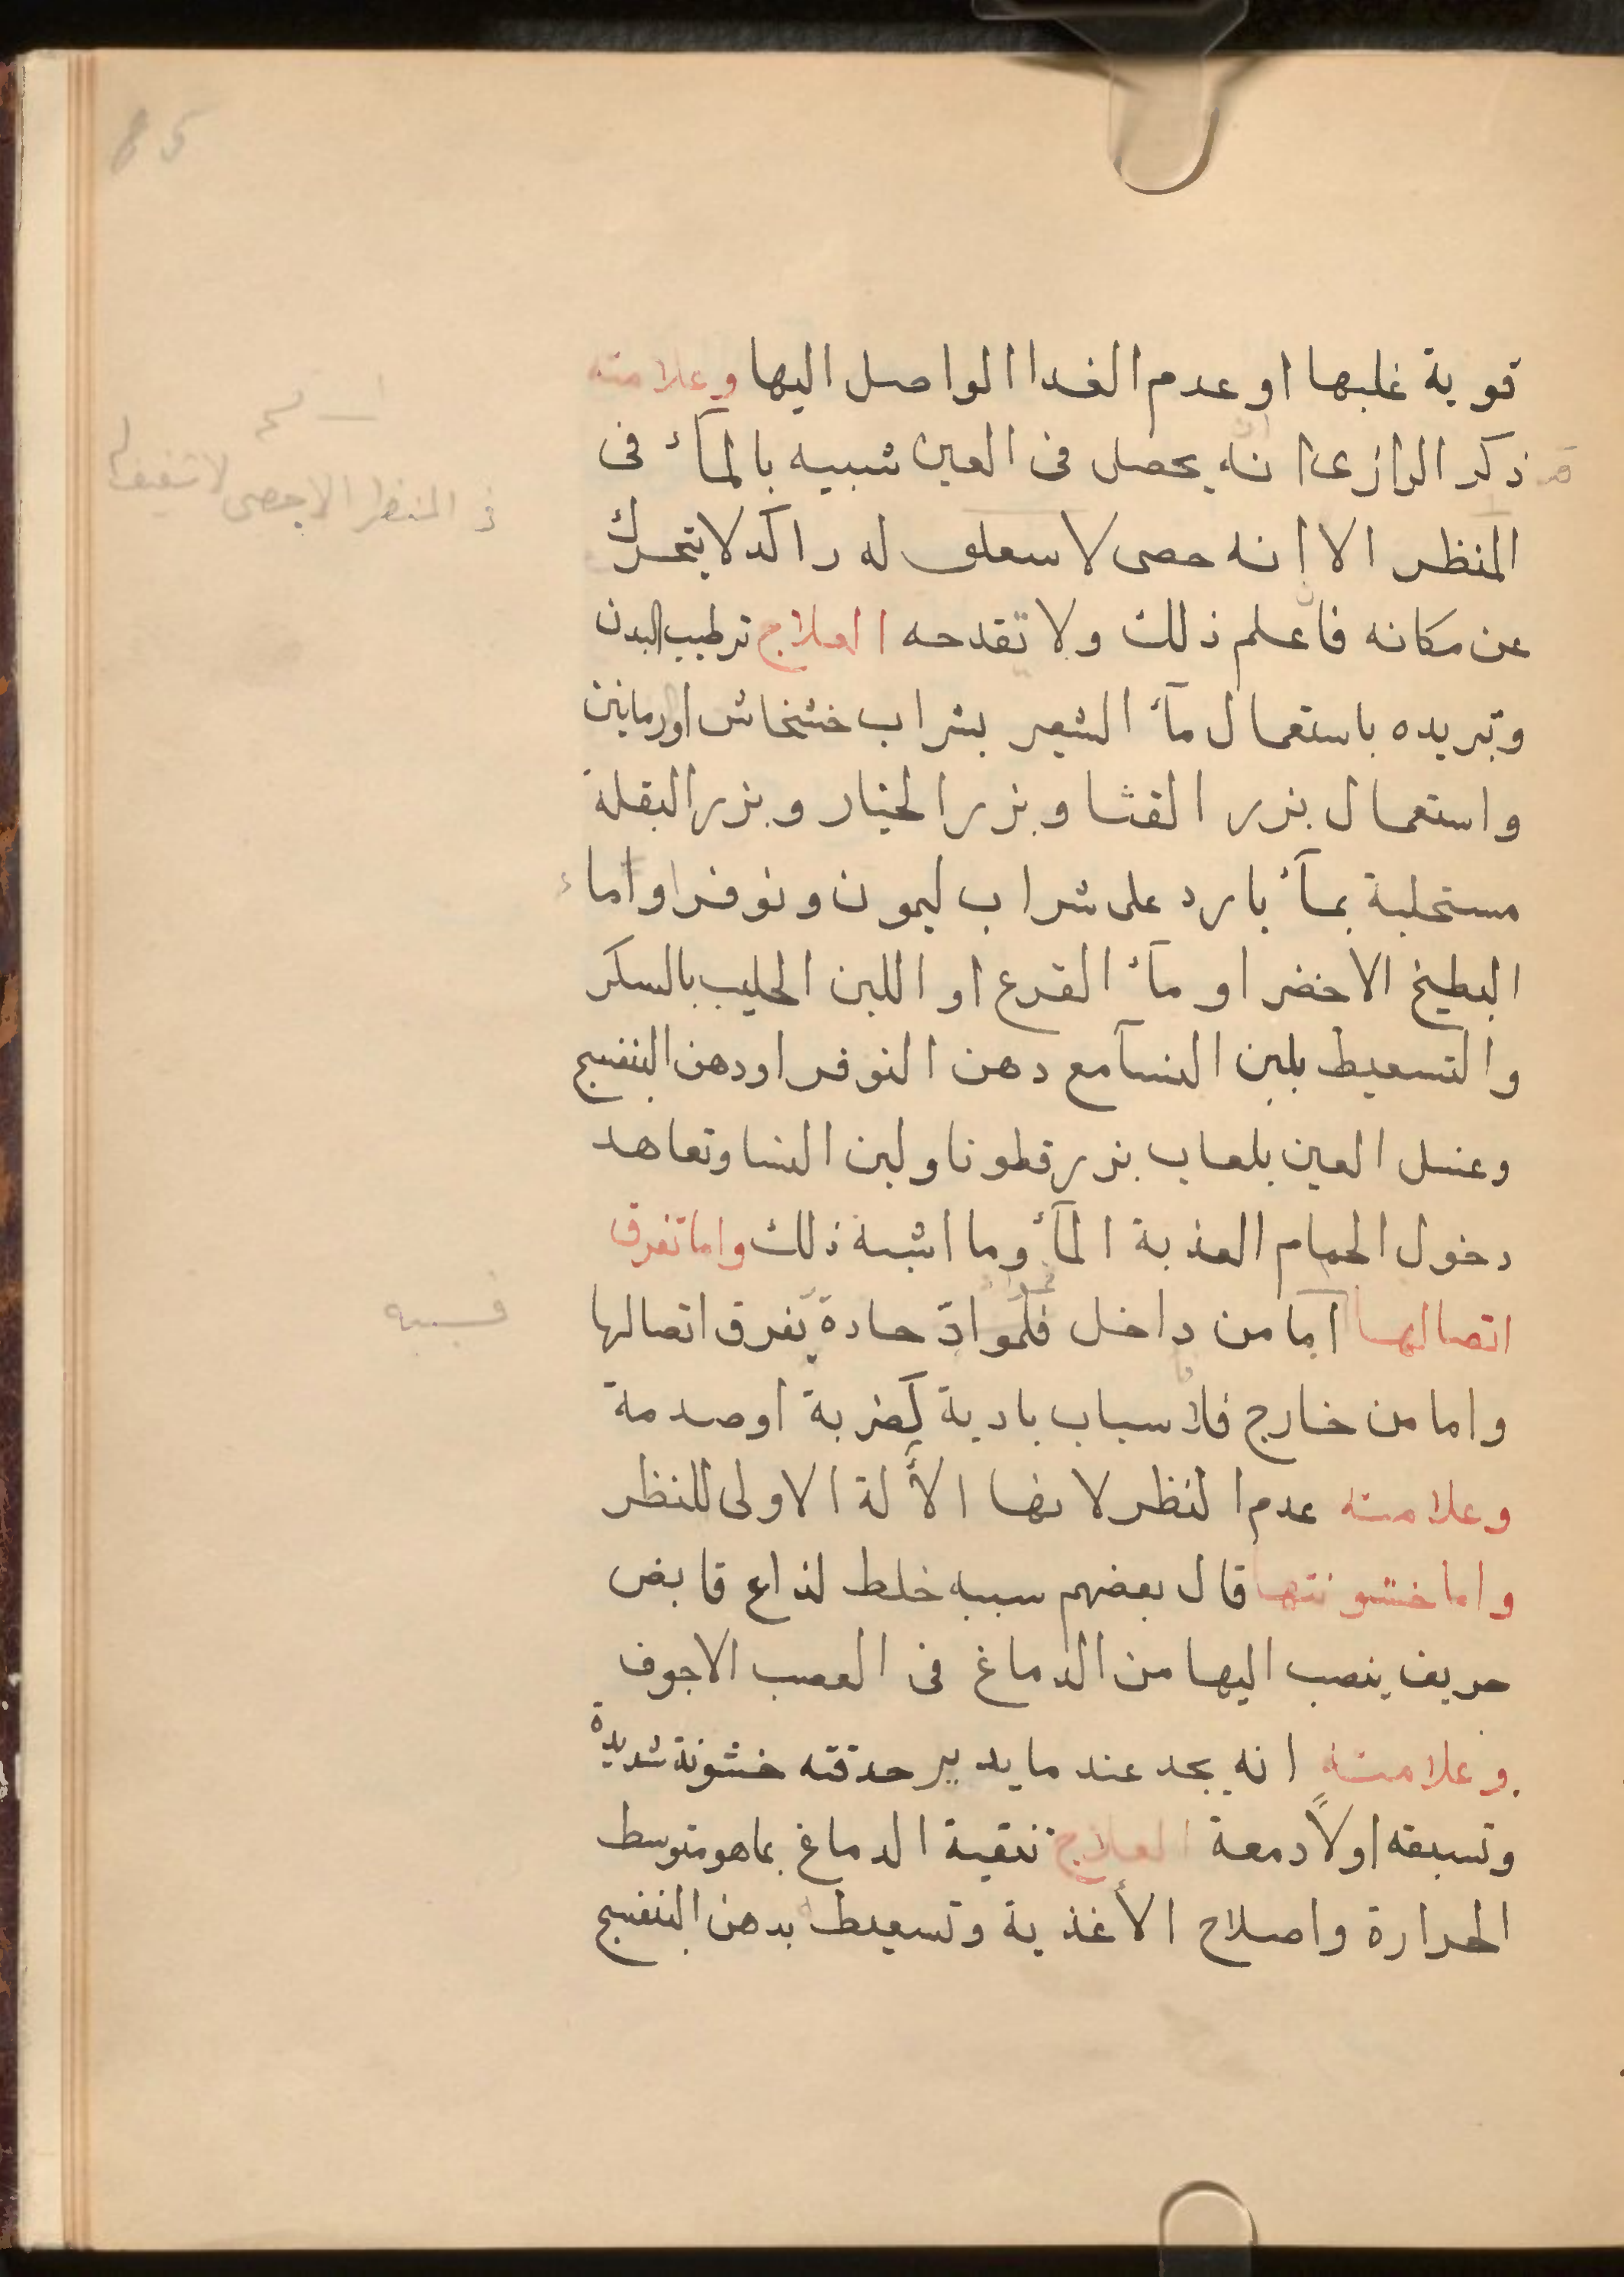 قوية غلبها او عدم الغدا الواصل اليها وعلامته
ذكر الرازى انه يحصل فى العين شبيه بالمآء فى
المنظر الا انه حصى لا سعلق له راكد لا يتحرك
عن مكانه فاعلم ذلك ولا تقدحه العلاج ترطيب البدن
وتبريده باستعمال مآء الشعير بشراب خشخاش اورمانين
واستعمال بزر القثا وبزر الخيار وبزر البقلة
مستحلبة بمآء بارد على شراب ليمون ونوفر او اماء
البطيخ الاخضر او مآء القرع او اللبن الحليب بالسكر
والتسعيط بلبن النسآ مع دهن النوفر او دهن البنفسج
وغسل العين بلعاب بزر قطونا ولبن النسا وتعاهد
دخول الحمام العذبة المآء وما اشبه ذلك واما تفرق
اتصالها اما من داخل فلمواد حادة يفرق اتصالها
واما من خارج فلاسباب بادية كضربة او صدمة
وعلامته عدم النظر لانها الألة الاولى للنظر
واما خشونتها قال بعضهم سببه خلط لذاع قابض
حريف ينصب اليها من الدماغ فى العصب الاجوف
وعلامته انه يجد عند ما يدير حدقته خشونة شديدة
وتسبقه اولاً دمعة العلاج تنقية الدماغ بما هو متوسط
الحرارة واصلاح الأغذية وتسعيط بدهن البنفسج
85
فى المنظر الا جصى
فسببه